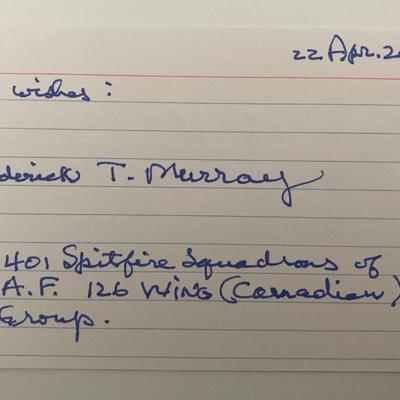 22 Apr. 20
wishes :
derick T. Murray
401 Spitfire Squadrons of
A.F. 126 WING (Canadian)
Group.